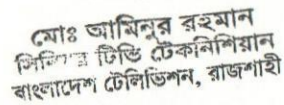 মোঃ আমিনুর রহমান
টিভি টেকনিশিয়ান
বাংলাদেশ টেলিভিশন, রাজশাহী